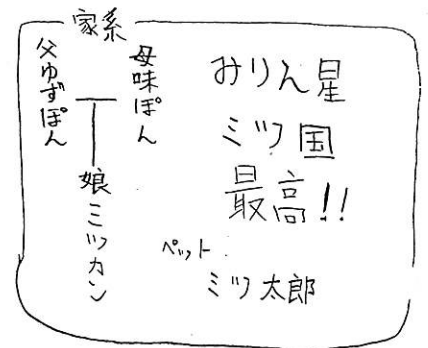 家系
父ゆずぽん
母味ぽん
娘ミツカン
みりん星
ミツ国
最高!!
ペット
ミツ太郎